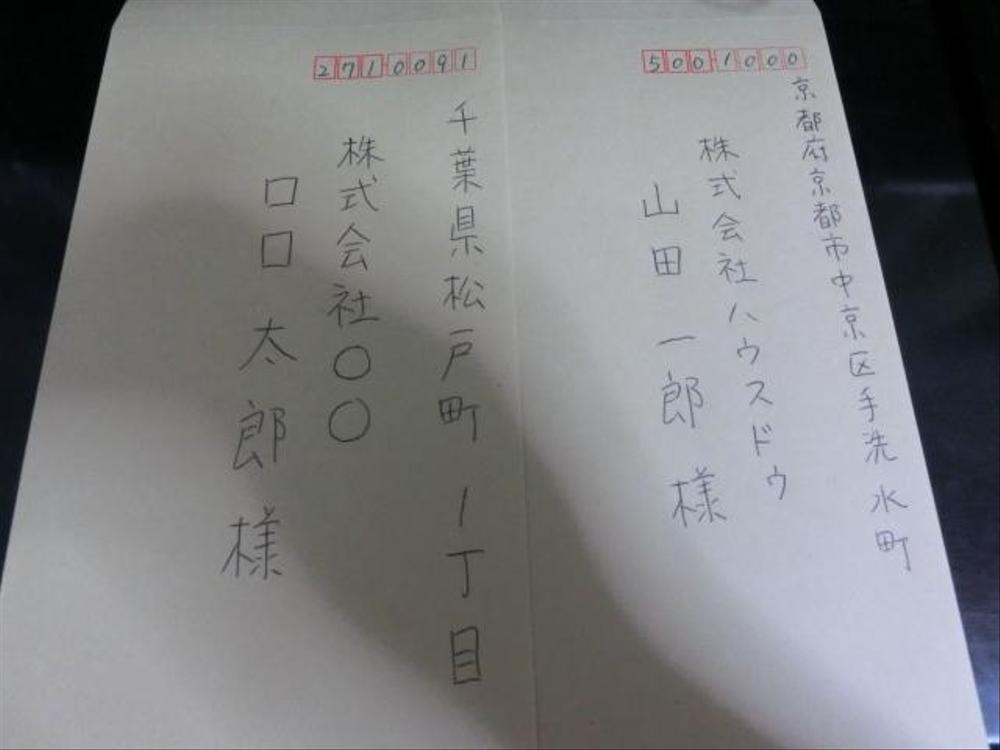 5001000
京都府京都市中京区手洗水町
株式会社ハウスドウ
山田一郎様
2710091
千葉県松戸町1丁目
株式会社〇〇
口口太郎様